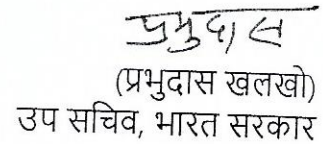 प्रभुदास
(प्रभुदास खलखो)
उप सचिव, भारत सरकार